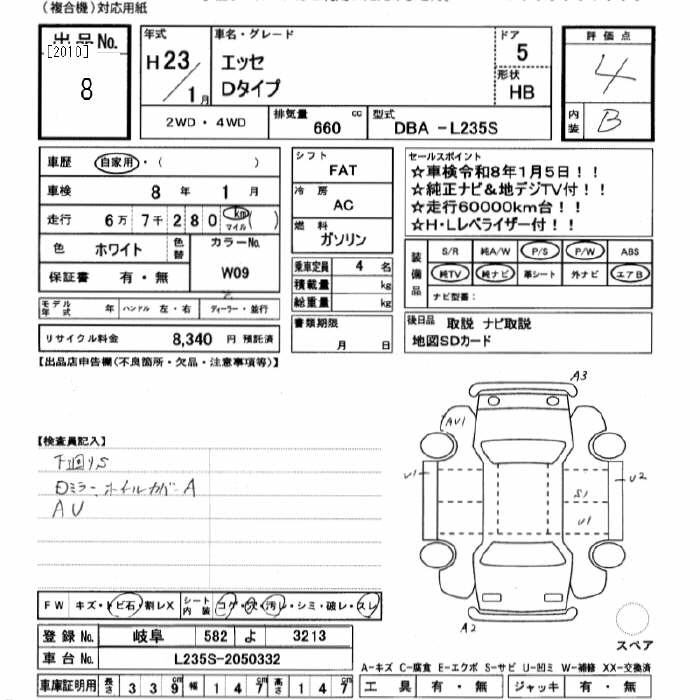 (複合機)対応用紙
出品No.
[2010]
8
年式
H23/1月
車名・グレード
エッセ
Dタイプ
ドア
5
形状
HB
評価点
4
内装
B
2WD・4WD
排気量 660 cc
型式 DBA -L235S
車歴 自家用・( )
車検 8 年 1 月
走行 6万 7千 2 8 0 km マイル ( )
色 ホワイト 色替
カラーNo.
W09
保証書 有・無
モデル年式 年 ハンドル 左・右 ディーラー・並行
リサイクル料金 8,340 円 預託済
シフト
FAT
冷房
AC
燃料
ガソリン
乗車定員 4 名
積載量 kg
総重量 kg
書類期限
月 日
セールスポイント
☆車検令和8年1月5日!!
☆純正ナビ&地デジTV付!!
☆走行60000km台!!
☆H・Lレベライザー付!!
装備品
S/R 純A/W P/S P/W ABS
純TV 純ナビ 革シート 外ナビ エアB
ナビ型番:
後日品 取説 ナビ取説
地図SDカード
【出品店申告欄(不良箇所・欠品・注意事項等)】
【検査員記入】
下回りS
Dミラー、ホイルカバーA
AU
A3
AU1
U1
U2
S1
U1
A2
スペア
FW キズ・トビ石・割レX
シート内装 コゲ・穴・汚レ・シミ・破レ・スレ
登録No. 岐阜 582 よ 3213
車台No. L235S-2050332
車庫証明用 長さ 3 3 9cm 幅 1 4 7cm 高さ 1 4 7cm
A-キズ C-腐食 E-エクボ S-サビ U-凹ミ W-補修 XX-交換済
工具 有・無 ジャッキ 有・無